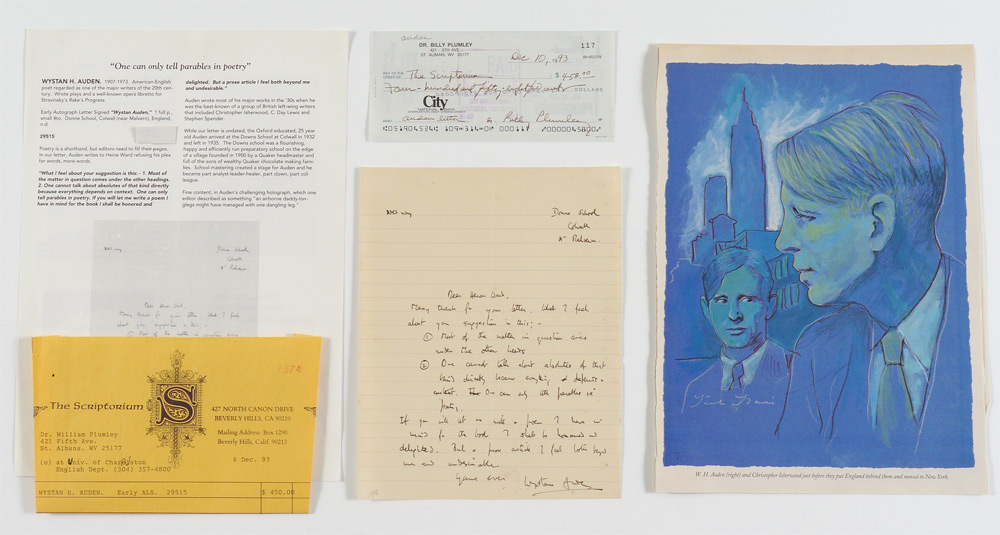 "One can only tell parables in poetry"
WYSTAN H. AUDEN. 1907-1973. American-English
poet regarded as one of the major writers of the 20th cen-
tury. Wrote plays and a well-known opera libretto for
Stravinsky's Rake's Progress.
Early Autograph Letter Signed "Wystan Auden," 1 full p.,
small 4to, Donne School, Colwall (near Malvern), England,
n.d.
29515
Poetry is a shorthand, but editors need to fill their pages.
In our letter, Auden writes to Heinz Ward refusing his plea
for words, more words.
"What I feel about your suggestion is this: - 1. Most of
the matter in question comes under the other headings.
2. One cannot talk about absolutes of that kind directly
because everything depends on context. One can only
tell parables in poetry. If you will let me write a poem I
have in mind for the book I shall be honored and
delighted. But a prose article I feel both beyond me
and undesirable."
Auden wrote most of his major works in the '30s when he
was the best-known of a group of British left-wing writers
that included Christopher Isherwood, C. Day Lewis and
Stephen Spender.
While our letter is undated, the Oxford educated, 25 year
old Auden arrived at the Downs School at Colwall in 1932
and left in 1935. The Downs school was a flourishing,
happy and efficiently run preparatory school on the edge
of a village founded in 1900 by a Quaker headmaster and
full of the sons of wealthy Quaker chocolate making fami-
lies. School mastering created a stage for Auden and he
became part analyst-leader-healer, part clown, part col-
league.
Fine content, in Auden's challenging holograph, which one
editor described as something "an airborne daddy-lon-
glegs might have managed with one dangling leg."
Colwall
Many thanks for your letter. What I feel
about your suggestion is this; -
① Most of the matter in question comes
The Scriptorium
S
427 NORTH CANON DRIVE
BEVERLY HILLS, CA 90210
Mailing Address: Box 1290
Beverly Hills, Calif. 90213
Dr. William Plumley
421 Fifth Ave.
St. Albans, WV 25177
(o) at Univ. of Charleston
English Dept. (304) 357-4800
6 Dec. 93
WYSTAN H. AUDEN. Early ALS. 29515 $ 450.00
auden
DR. BILLY PLUMLEY
421 - 5TH AVE.
ST. ALBANS, WV 25177
117
Dec 10, 1993
PAY TO THE
ORDER OF The Scriptorium $458.00
Four-hundred and fifty-eight DOLLARS
City
MEMO auden letter Billy Plumley
School
Colwall
Many thanks for your letter. What I feel
about your suggestion is this; -
① Most of the matter in question comes
under the other heads
② One cannot talk about absolutes of that
kind directly because everything depends on
context. One can only tell parables in
poetry.
If you will let me write a poem I have in
mind for the book I shall be honoured and
delighted. But a prose article I feel both beyond
me and undesirable.
Yours ever
Wystan Auden
W. H. Auden (right) and Christopher Isherwood just before they put England behind them and moved to New York.